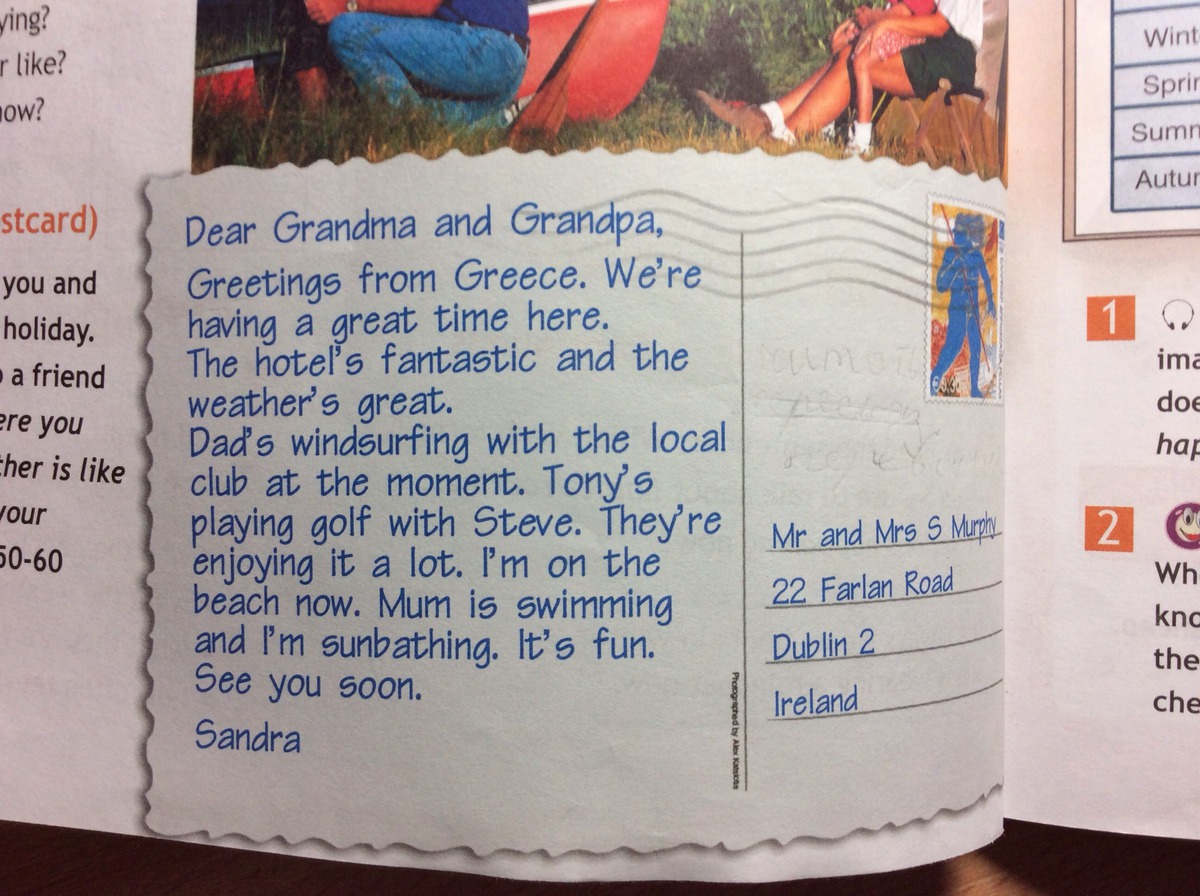 ying?
r like?
now?
stcard)
you and
holiday.
a friend
ere you
ther is like
your
50-60
Dear Grandma and Grandpa,
Greetings from Greece. We're
having a great time here.
The hotel's fantastic and the
weather's great.
Dad's windsurfing with the local
club at the moment. Tony's
playing golf with Steve. They're
enjoying it a lot. I'm on the
beach now. Mum is swimming
and I'm sunbathing. It's fun.
See you soon.
Sandra
Photographed by Alex
Mr and Mrs S Murphy
22 Farlan Road
Dublin 2
Ireland
Wint
Sprin
Summ
Autur
1
ima
doe
hap
2
Wh
kno
the
che